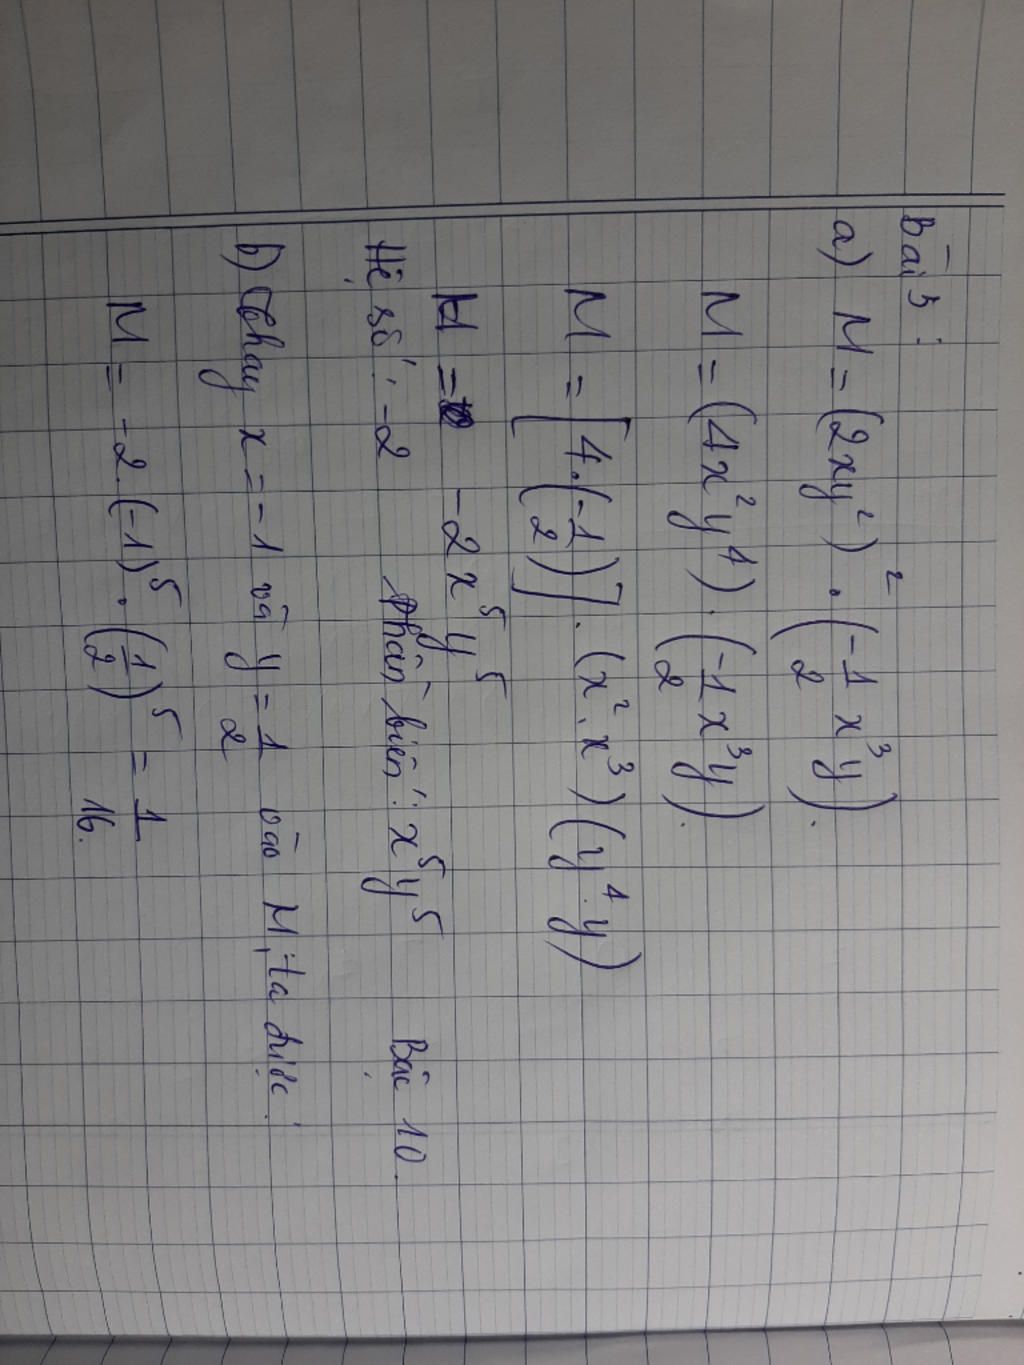 Bài 3 :
a) M = (2xy²)² . (-1/2 x³y).
M = (4x²y⁴) . (-1/2 x³y).
M = [4.(-1/2)] . (x² . x³) (y⁴ . y)
M = -2x⁵y⁵
Hệ số : -2 Phần biến : x⁵y⁵ Bậc 10.
b) Thay x = -1 và y = 1/2 vào M, ta được :
M = -2.(-1)⁵ . (1/2)⁵ = 1/16.